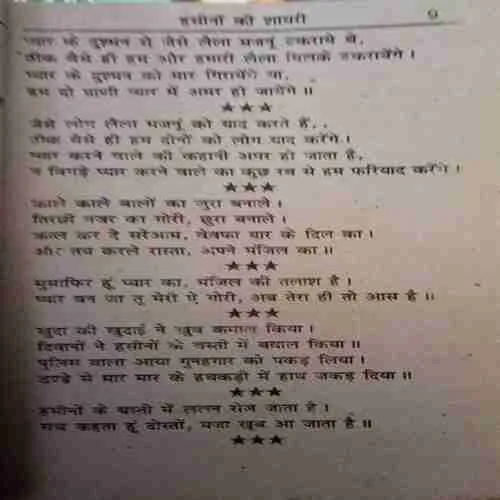 हसीनों की शायरी 9
प्यार के दुश्मन से जैसे लैला मजनूं टकराये थे,
ठीक वैसे ही हम और हमारी लैला मिलके टकरायेंगे।
प्यार के दुश्मन को मार गिरायेंगे या,
हम दो प्राणी प्यार में अमर हो जायेंगे॥
★★★
जैसे लोग लैला मजनूं को याद करते हैं,.
ठीक वैसे ही हम दोनों को लोग याद करेंगे।
प्यार करने वाले की कहानी अमर हो जाता है,
न बिगड़े प्यार करने वाले का कुछ रब से हम फरियाद करेंगे।
★★★
काले काले बालों का जुरा बनाले।
तिरछी नजर का गोरी, छुरा बनाले।
कत्ल कर दे सरेआम, बेवफा यार के दिल का।
और तय करले रास्ता, अपने मंजिल का॥
★★★
मुसाफिर हूं प्यार का, मंजिल की तलाश है।
प्यार बन जा तू मेरी ऐ गोरी, अब तेरा ही तो आस है॥
★★★
खुदा की खुदाई ने खुब कमाल किया।
दिवानों ने हसीनों के बस्ती में बवाल किया॥
पुलिस वाला आया गुनहगार को पकड़ लिया।
डण्डे से मार मार के हथकड़ी में हाथ जकड़ दिया॥
★★★
हसीनों के बस्ती में ललन रोज जाता है।
सच कहता हूं दोस्तों, मजा खूब आ जाता है॥
★★★